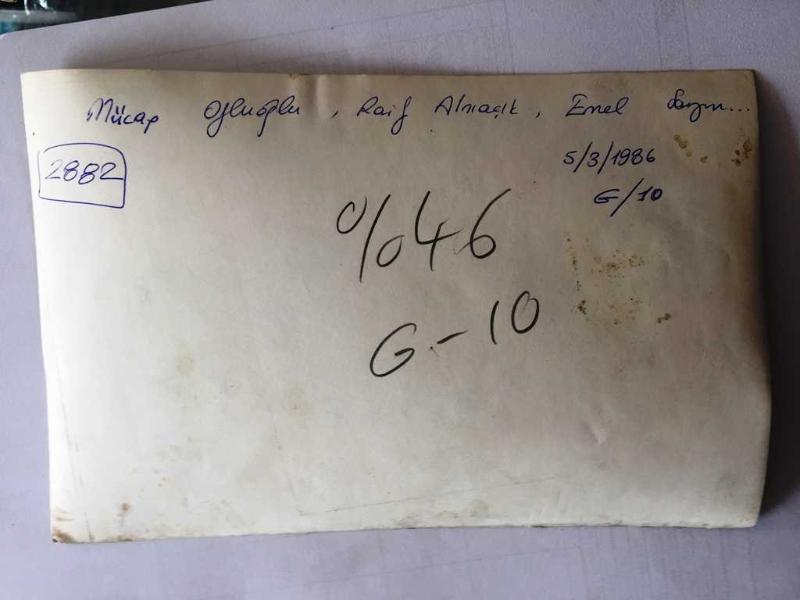 Mücap Ofluoğlu, Raif Alnıaçık, Emel Sayın...
2882
5/3/1986
G/10
%46
G-10